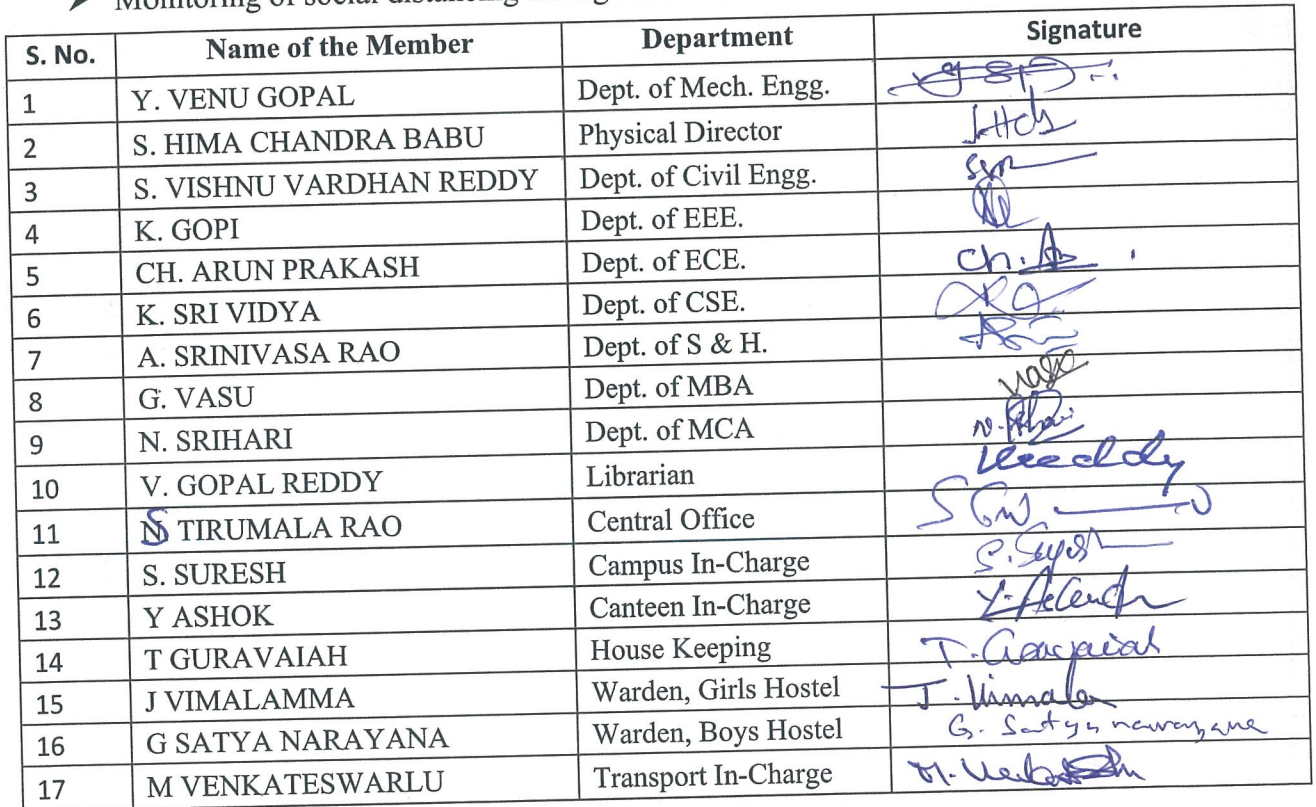 Monitoring of social distancing
S. No. Name of the Member Department Signature
1 Y. VENU GOPAL Dept. of Mech. Engg.
2 S. HIMA CHANDRA BABU Physical Director
3 S. VISHNU VARDHAN REDDY Dept. of Civil Engg.
4 K. GOPI Dept. of EEE.
5 CH. ARUN PRAKASH Dept. of ECE. Ch.
6 K. SRI VIDYA Dept. of CSE.
7 A. SRINIVASA RAO Dept. of S & H.
8 G. VASU Dept. of MBA Vasu
9 N. SRIHARI Dept. of MCA N.
10 V. GOPAL REDDY Librarian
11 S TIRUMALA RAO Central Office
12 S. SURESH Campus In-Charge
13 Y ASHOK Canteen In-Charge
14 T GURAVAIAH House Keeping
15 J VIMALAMMA Warden, Girls Hostel J. Vimala
16 G SATYA NARAYANA Warden, Boys Hostel G. Satya narayana
17 M VENKATESWARLU Transport In-Charge